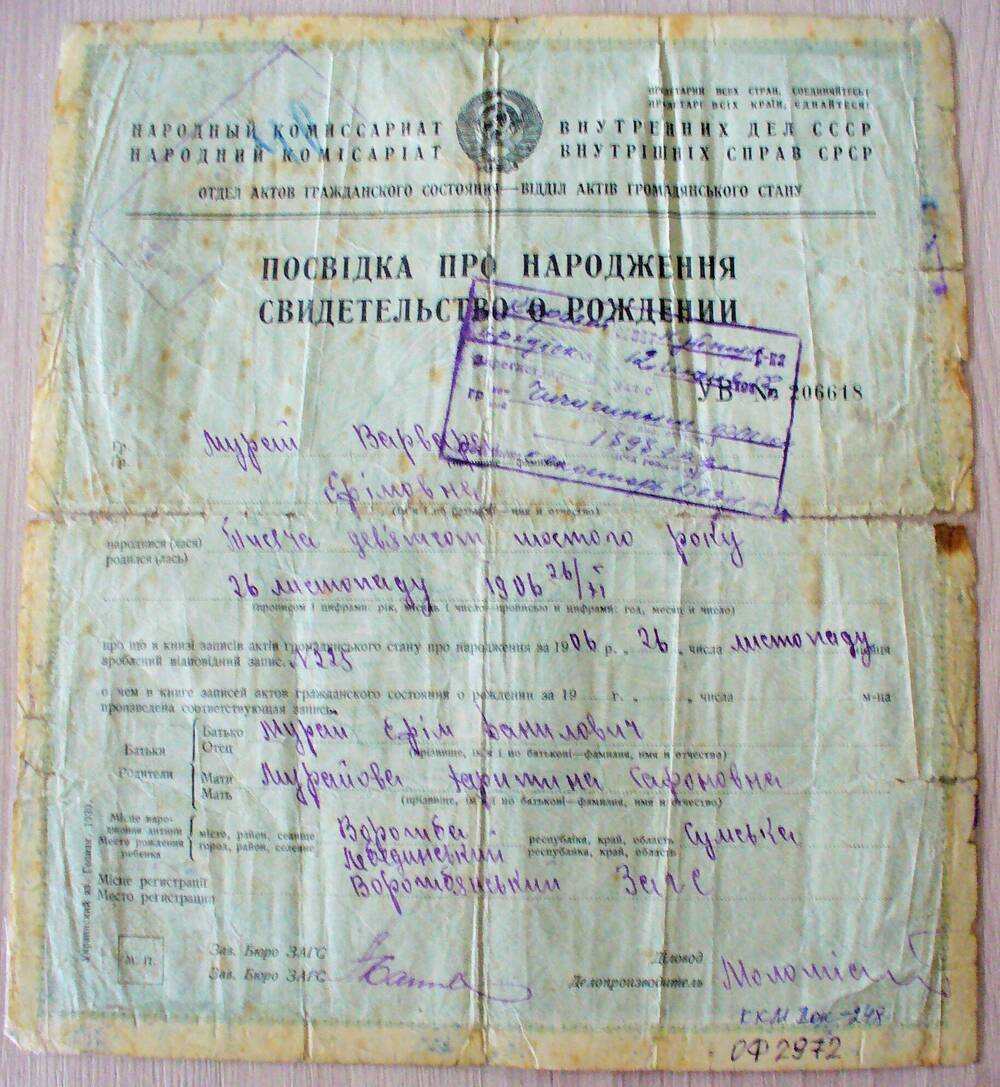 ПРОЛЕТАРИИ ВСЕХ СТРАН, СОЕДИНЯЙТЕСЬ!
ПРОЛЕТАРІ ВСІХ КРАЇН, ЄДНАЙТЕСЯ!
НАРОДНЫЙ КОМИССАРИАТ ВНУТРЕННИХ ДЕЛ СССР
НАРОДНИЙ КОМІСАРІАТ ВНУТРІШНІХ СПРАВ СРСР
ОТДЕЛ АКТОВ ГРАЖДАНСКОГО СОСТОЯНИЯ—ВІДДІЛ АКТІВ ГРОМАДЯНСЬКОГО СТАНУ
ПОСВІДКА ПРО НАРОДЖЕННЯ
СВИДЕТЕЛЬСТВО О РОЖДЕНИИ
р-на
УВ № 206618
гр
1898
Гр. Мурай Варвара
Гр.
фамилия)
Єфімовна
(ім'я і по батькові—имя и отчество)
народився (лася) Тисяча дев'ятсот шостого року
родился (лась)
26 листопаду 1906 26/XI
(прописом і цифрами: рік, місяць і число—прописью и цифрами: год, месяц и число)
про що в книзі записів актів громадянського стану про народження за 1906 р. „ 26 „ числа листопаду місяця
зроблений відповідний запис. №225
о чем в книге записей актов гражданского состояния о рождении за 19 г. „ „ числа м-ца
произведена соответствующая запись
Батьки Батько Мурай Єфім Данилович
Отец
(прізвище, ім'я і по батькові—фамилия, имя и отчество)
Родители Мати Мурайова Харитина Сафоновна
Мать
(прізвище, ім'я і по батькові—фамилия, имя и отчество)
Місце народження дитини місто, район, селище Ворожба республіка, край, область Сумська
Место рождения ребенка город, район, селение республика, край, область
Місце регистрації Ворожбянський Загс
Место регистрации
М. П.
Зав. Бюро ЗАГС Діловод
Зав. Бюро ЗАГС Делопроизводитель
ККМ Док-248
ОФ2972